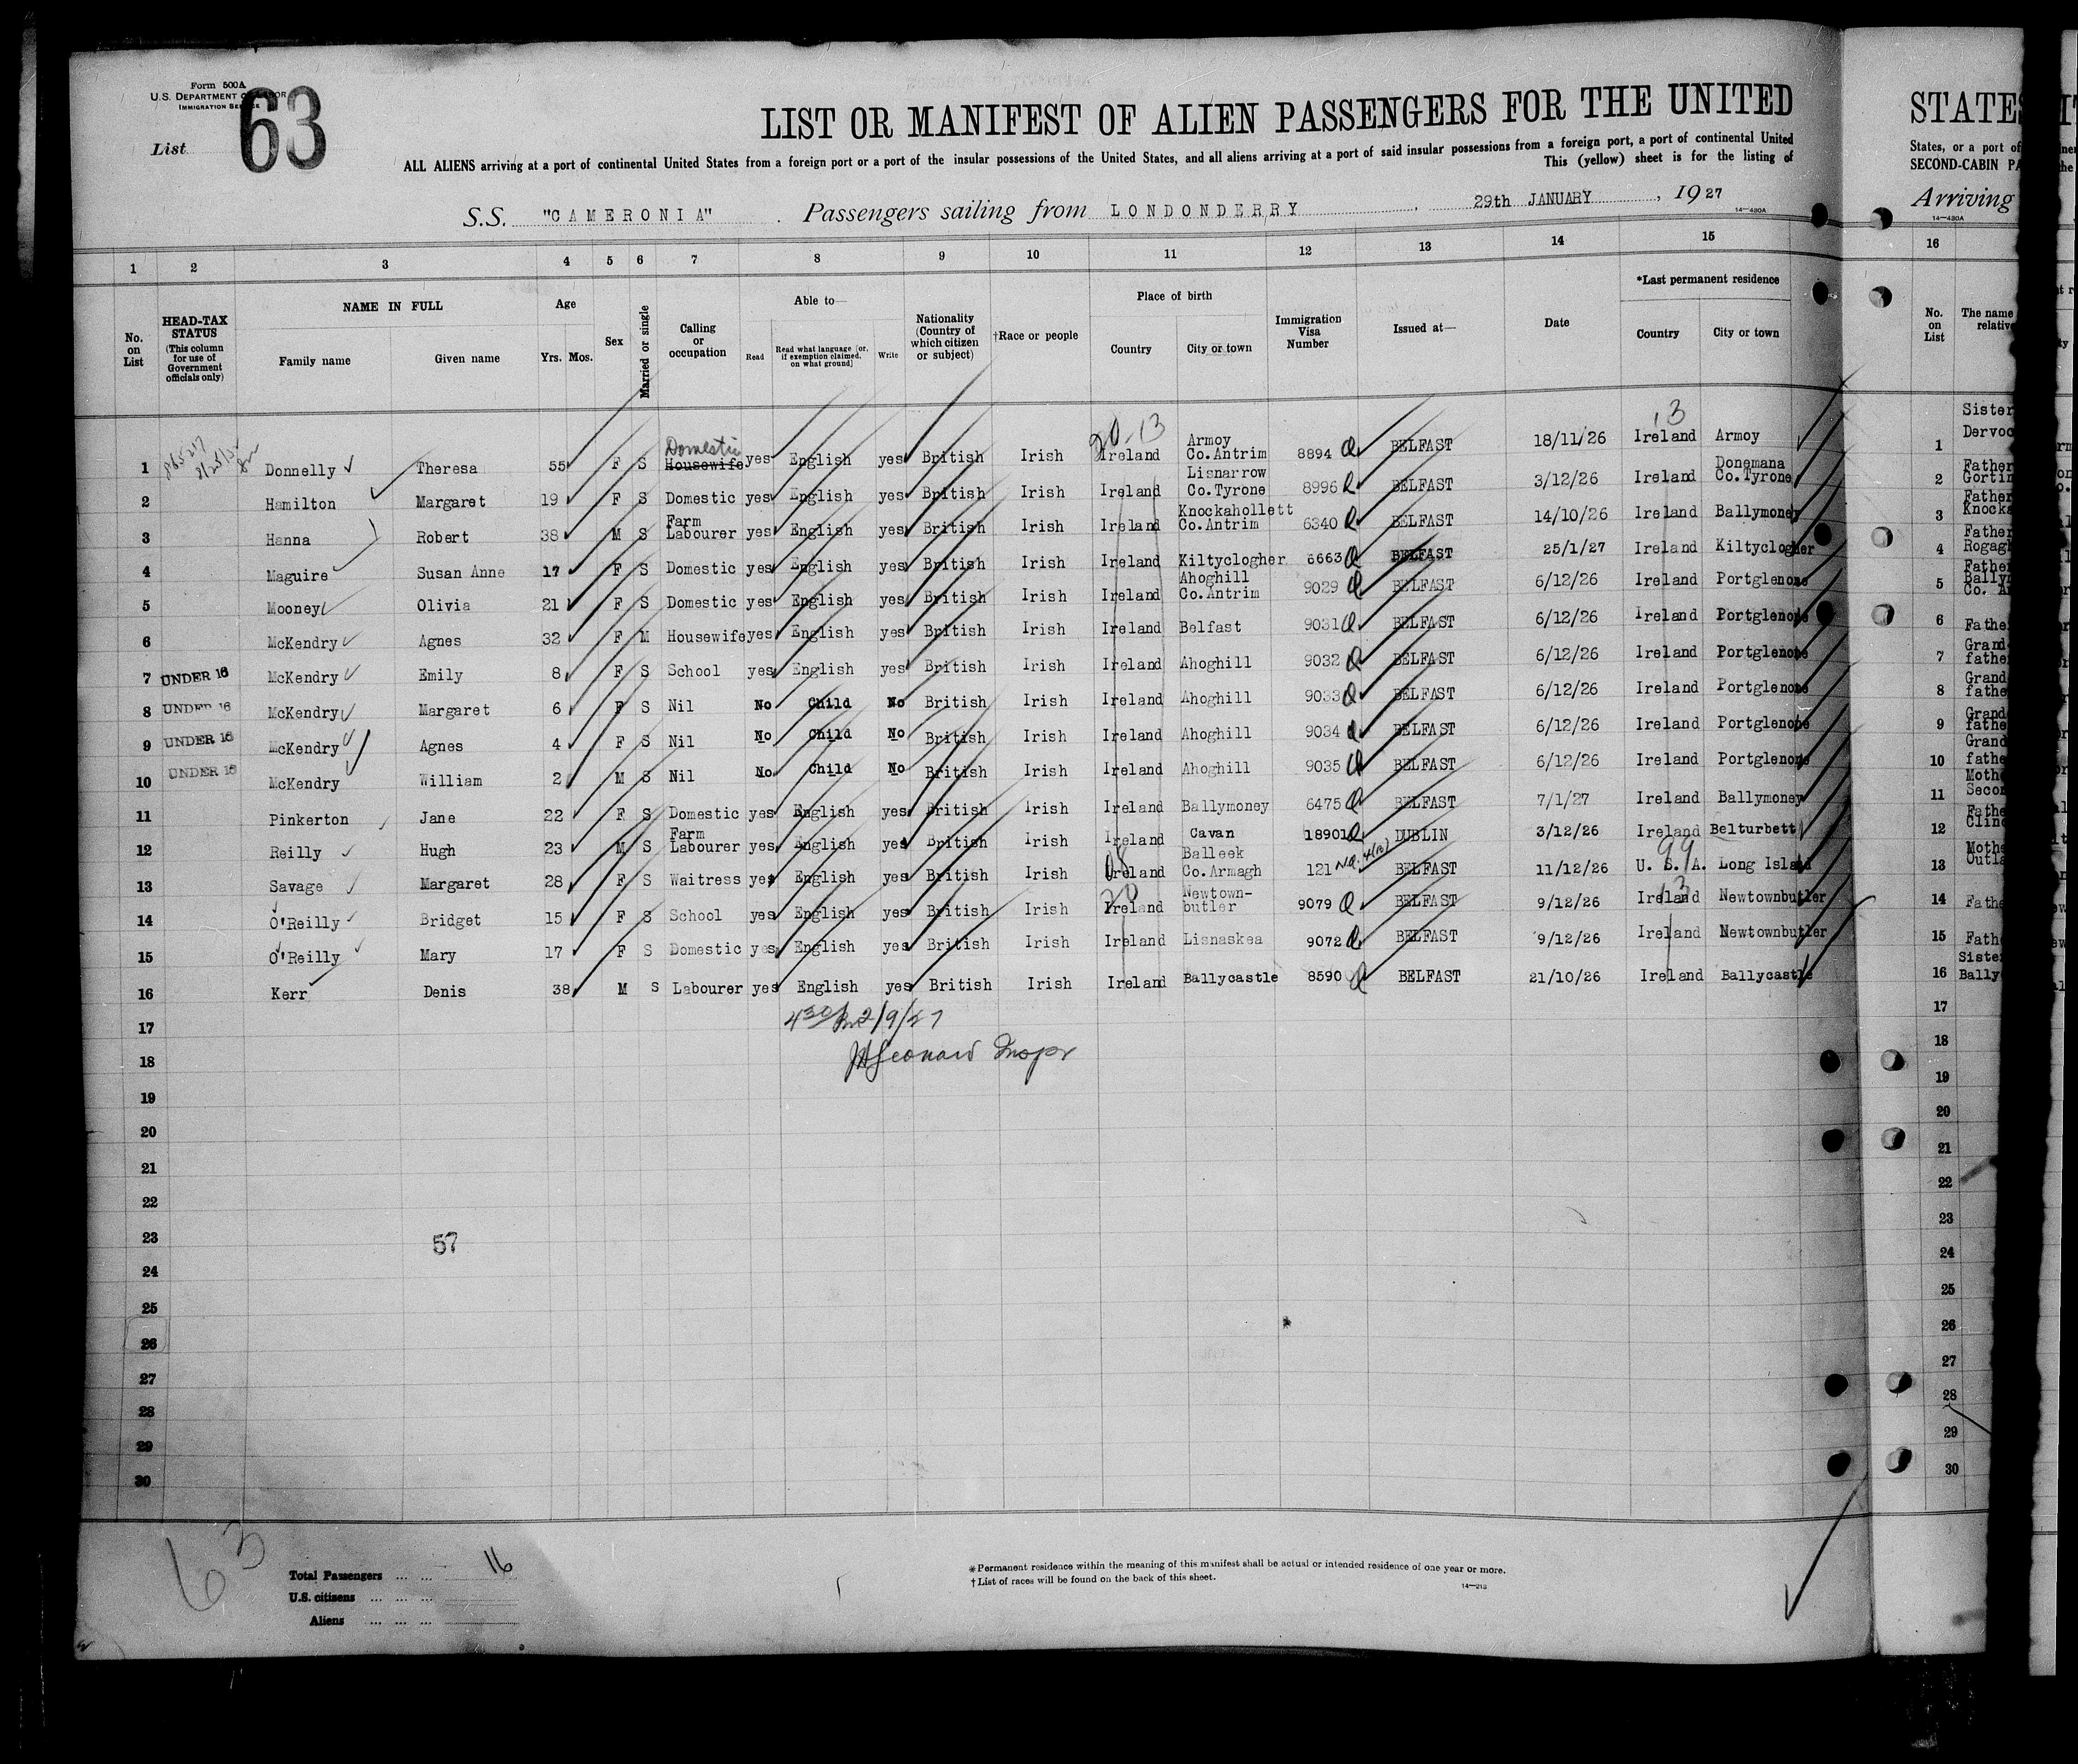 Form 500A
U.S. DEPARTMENT OF LABOR
IMMIGRATION SERVICE
List 63
LIST OR MANIFEST OF ALIEN PASSENGERS FOR THE UNITED
ALL ALIENS arriving at a port of continental United States from a foreign port or a port of the insular possessions of the United States, and all aliens arriving at a port of said insular possessions from a foreign port, a port of continental United
This (yellow) sheet is for the listing of
S.S. "CAMERONIA" . Passengers sailing from LONDONDERRY , 29th JANUARY , 1927
14—430A
1 2 3 4 5 6 7 8 9 10 11 12 13 14 15
No. on List
HEAD-TAX STATUS (This column for use of Government officials only)
NAME IN FULL
Family name Given name
Age
Yrs. Mos.
Sex
Married or single
Calling or occupation
Able to—
Read Read what language [or, if exemption claimed, on what ground] Write
Nationality (Country of which citizen or subject)
†Race or people
Place of birth
Country City or town
Immigration Visa Number
Issued at—
Date
*Last permanent residence
Country City or town
20-13 13
1 Donnelly Theresa 55 F S Domestic Housewife yes English yes British Irish Ireland Armoy Co.Antrim 8894 BELFAST 18/11/26 Ireland Armoy
2 Hamilton Margaret 19 F S Domestic yes English yes British Irish Ireland Lisnarrow Co.Tyrone 8996 BELFAST 3/12/26 Ireland Donemana Co.Tyrone
3 Hanna Robert 38 M S Farm Labourer yes English yes British Irish Ireland Knockahollett Co.Antrim 6340 BELFAST 14/10/26 Ireland Ballymoney
4 Maguire Susan Anne 17 F S Domestic yes English yes British Irish Ireland Kiltyclogher 6663 BELFAST 25/1/27 Ireland Kiltyclogher
5 Mooney Olivia 21 F S Domestic yes English yes British Irish Ireland Ahoghill Co.Antrim 9029 BELFAST 6/12/26 Ireland Portglenone
6 McKendry Agnes 32 F M Housewife yes English yes British Irish Ireland Belfast 9031 BELFAST 6/12/26 Ireland Portglenone
7 UNDER 16 McKendry Emily 8 F S School yes English yes British Irish Ireland Ahoghill 9032 BELFAST 6/12/26 Ireland Portglenone
8 UNDER 16 McKendry Margaret 6 F S Nil No Child No British Irish Ireland Ahoghill 9033 BELFAST 6/12/26 Ireland Portglenone
9 UNDER 16 McKendry Agnes 4 F S Nil No Child No British Irish Ireland Ahoghill 9034 BELFAST 6/12/26 Ireland Portglenone
10 UNDER 16 McKendry William 2 M S Nil No Child No British Irish Ireland Ahoghill 9035 BELFAST 6/12/26 Ireland Portglenone
11 Pinkerton Jane 22 F S Domestic yes English yes British Irish Ireland Ballymoney 6475 BELFAST 7/1/27 Ireland Ballymoney
12 Reilly Hugh 23 M S Farm Labourer yes English yes British Irish Ireland Cavan 18901 DUBLIN 3/12/26 Ireland Belturbett
13 Savage Margaret 28 F S Waitress yes English yes British Irish Ireland Balleek Co.Armagh 121 BELFAST 11/12/26 U. S. A. Long Island
14 O'Reilly Bridget 15 F S School yes English yes British Irish Ireland Newtown-butler 9079 BELFAST 9/12/26 Ireland Newtownbutler
15 O'Reilly Mary 17 F S Domestic yes English yes British Irish Ireland Lisnaskea 9072 BELFAST 9/12/26 Ireland Newtownbutler
16 Kerr Denis 38 M S Labourer yes English yes British Irish Ireland Ballycastle 8590 BELFAST 21/10/26 Ireland Ballycastle
17
18
19
20
21
22
23
24
25
26
27
28
29
30
2/9/27
Leonard Inspr
57
63
Total Passengers ... ... 16
U.S. citizens ... ... ...
Aliens ... ... ...
*Permanent residence within the meaning of this manifest shall be actual or intended residence of one year or more.
†List of races will be found on the back of this sheet.
14—213
STATES
States, or a port of
SECOND-CABIN
Arriving
14—430A
16
No. on List
The name
1 Sister Dervoc
2 Father Gortin
3 Father Knocka
4 Father Rogagh
5 Father Ballym Co. A
6 Fathe
7 Grand fathe
8 Grand fathe
9 Grand fathe
10 Grand fathe
11 Mothe Secon
12 Fathe Clinc
13 Mothe Outla
14 Fathe
15 Fath
16 Sister Bally
17
18
19
20
21
22
23
24
25
26
27
28
29
30